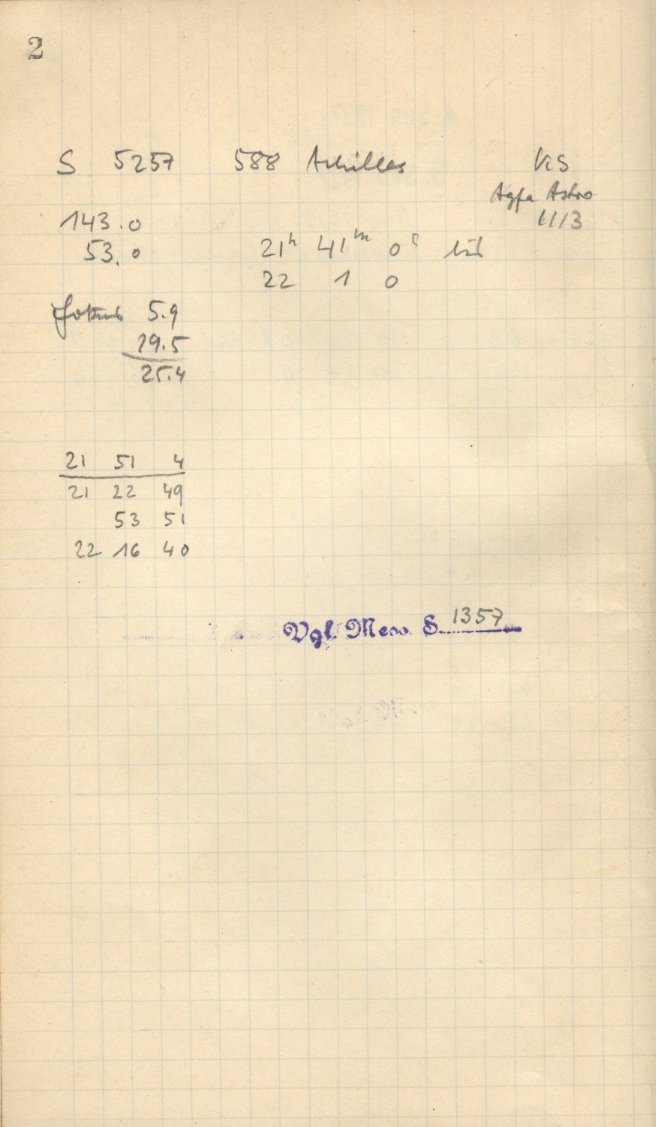 2
S 5257 588 Achilles KS
Agfa Astro
143.0 1113
53.0 21h 41m 0s bis
22 1 0
Fokus 5.9
19.5
25.4
21 51 4
21 22 49
53 51
22 16 40
Vgl. Mess S. 1357